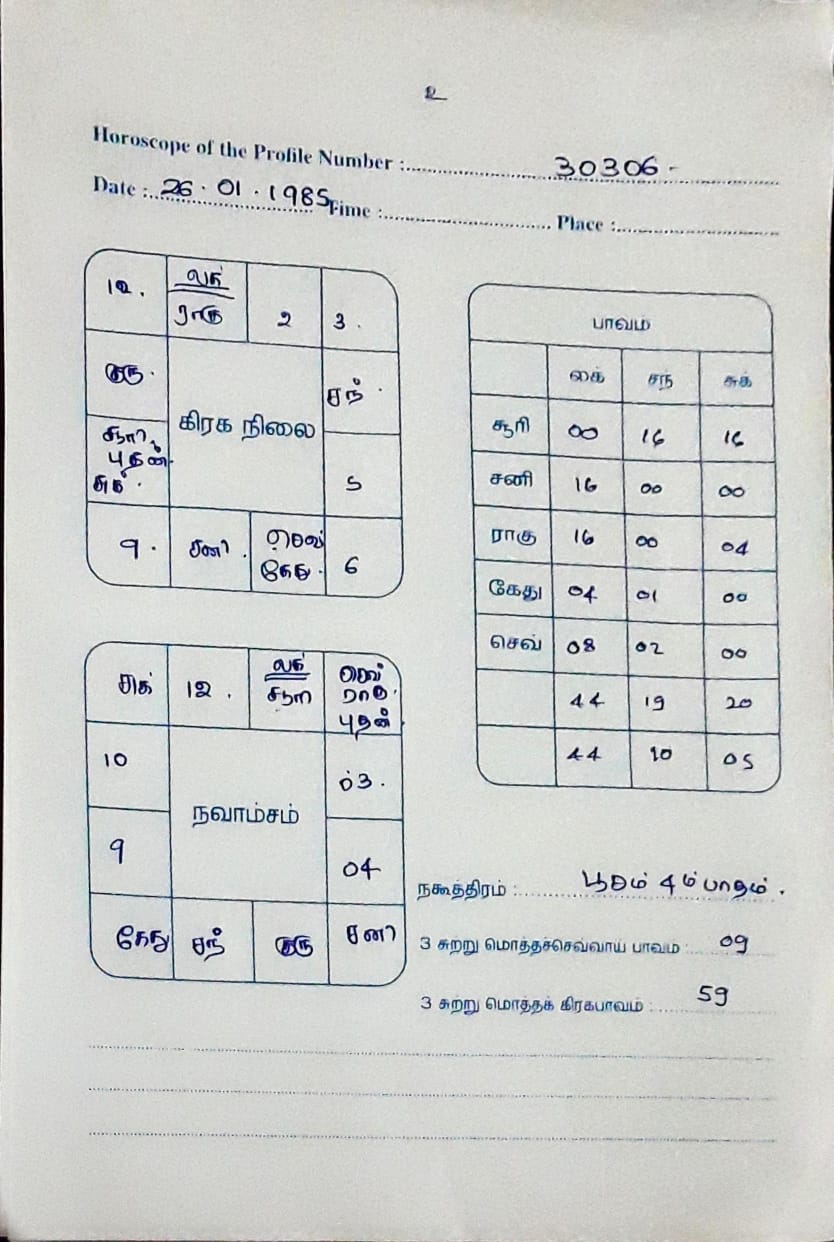 உ
Horoscope of the Profile Number : 30306 -
Date : 26.01.1985 Time : Place :
12. லக் ராகு 2 3.
குரு. சந்.
கிரக நிலை
சூரி, புதன். சுக். 5
9. சனி. செவ் கேது. 6
பாவம்
லக் சந் சுக்
சூரி 00 16 16
சனி 16 00 00
ராகு 16 00 04
கேது 04 01 00
செவ் 08 02 00
44 19 20
44 10 05
சுக் 12. லக் சூரி செவ் ராகு. புதன்
10 03.
நவாம்சம்
9 04
கேது சந் குரு சனி
நக்ஷத்திரம் : பூசம் 4 ம் பாதம்.
3 சுற்று மொத்தச்செவ்வாய் பாவம் : 09
3 சுற்று மொத்தக் கிரகபாவம் : 59